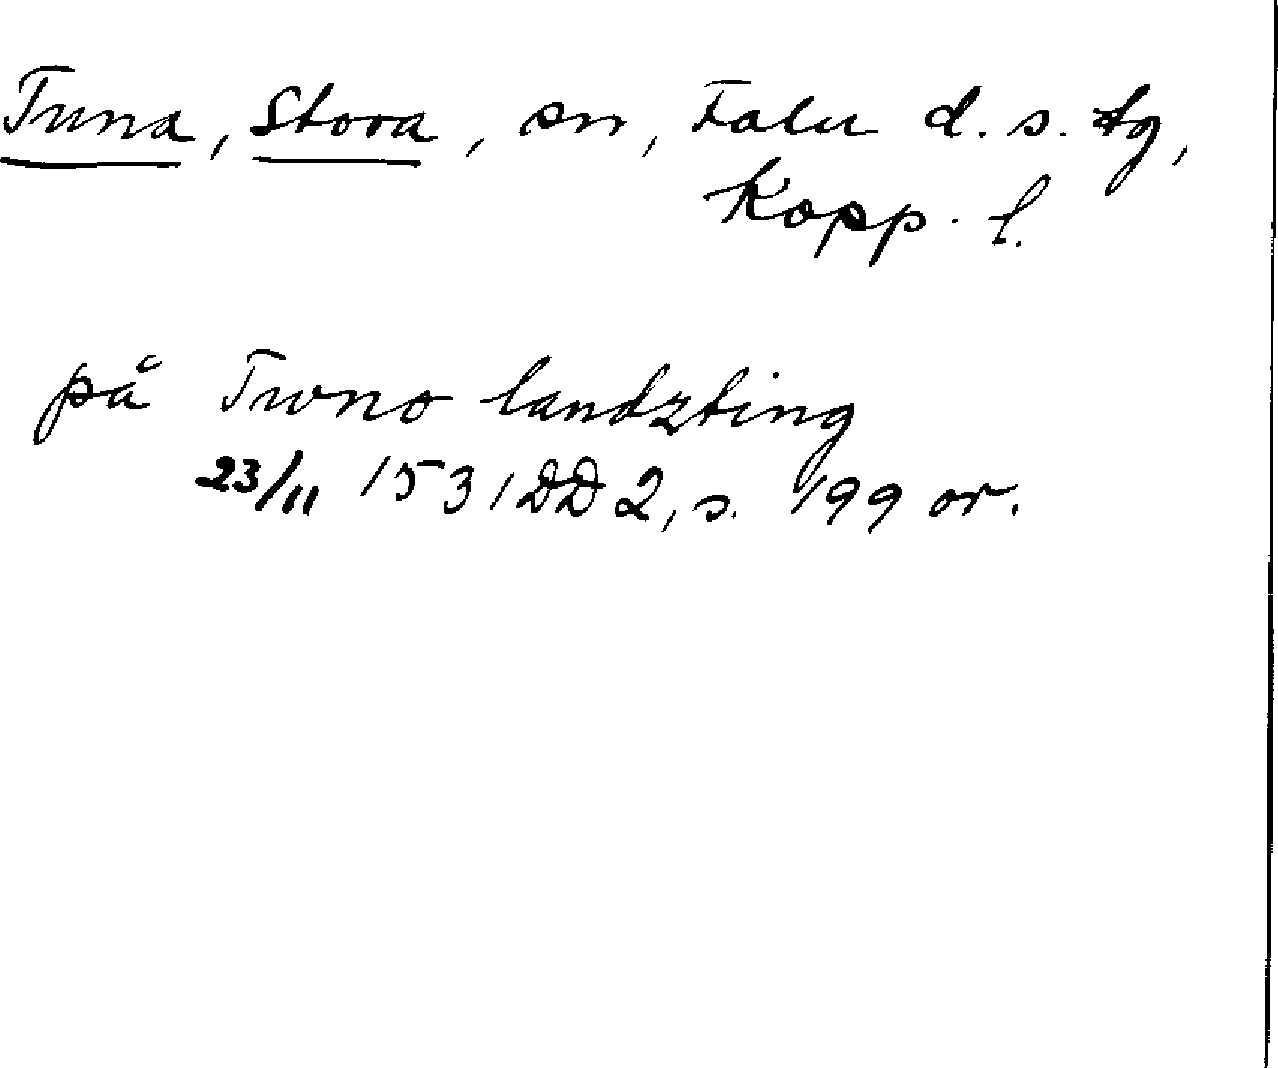 Tuna, Stora, sn, Falu d. s. tg,
Kopp. l.
på Twno landzting
23/11 1531 DD 2, s. 199 or.